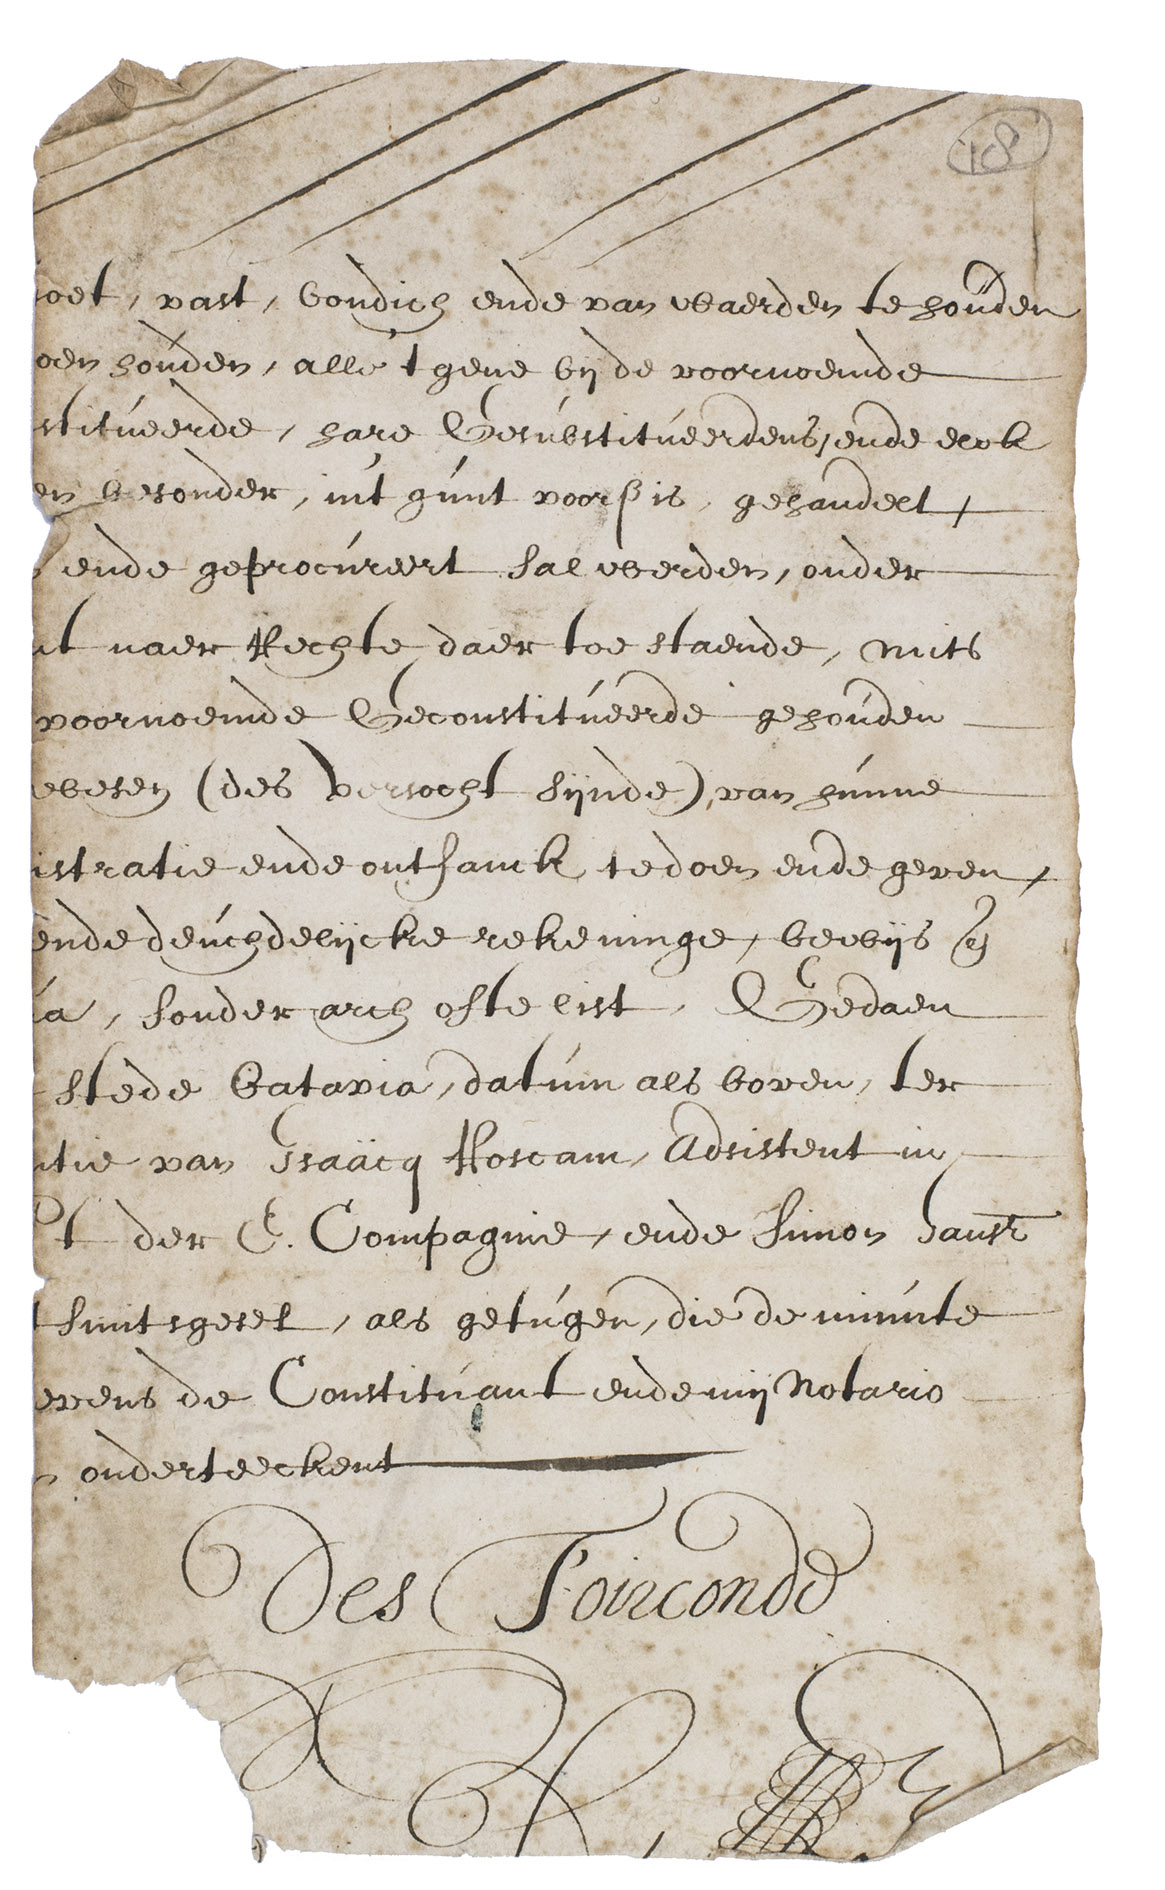 18
oet, vast, bondich ende van waerden te houden
oen houden, alle 't gene bij de voornoemde
stitueerde, hare Gesubstitueerdens, ende elck
en besonder, int gunt voorß is, gehandelt,
ende geprocureert sal werden, onder
nt naer Rechte daer toe staende, mits
voornoemde Geconstitueerde gehouden
wesen (des versocht sijnde), van hunne
istratie ende ontfanck te doen ende geven,
ende deuchdelijcke rekeninge, bewijs
ua, sonder arch ofte list, Gedaen
stede Batavia, datum als boven, ter
ntie van Isaäcq Roscam, Adsistent in
t der E. Compagnie, ende Simon Jansz
t smitsgesel, als getugen, die de minute
evens de Constituant ende mij Notario
n onderteeckent
Des Toirconde